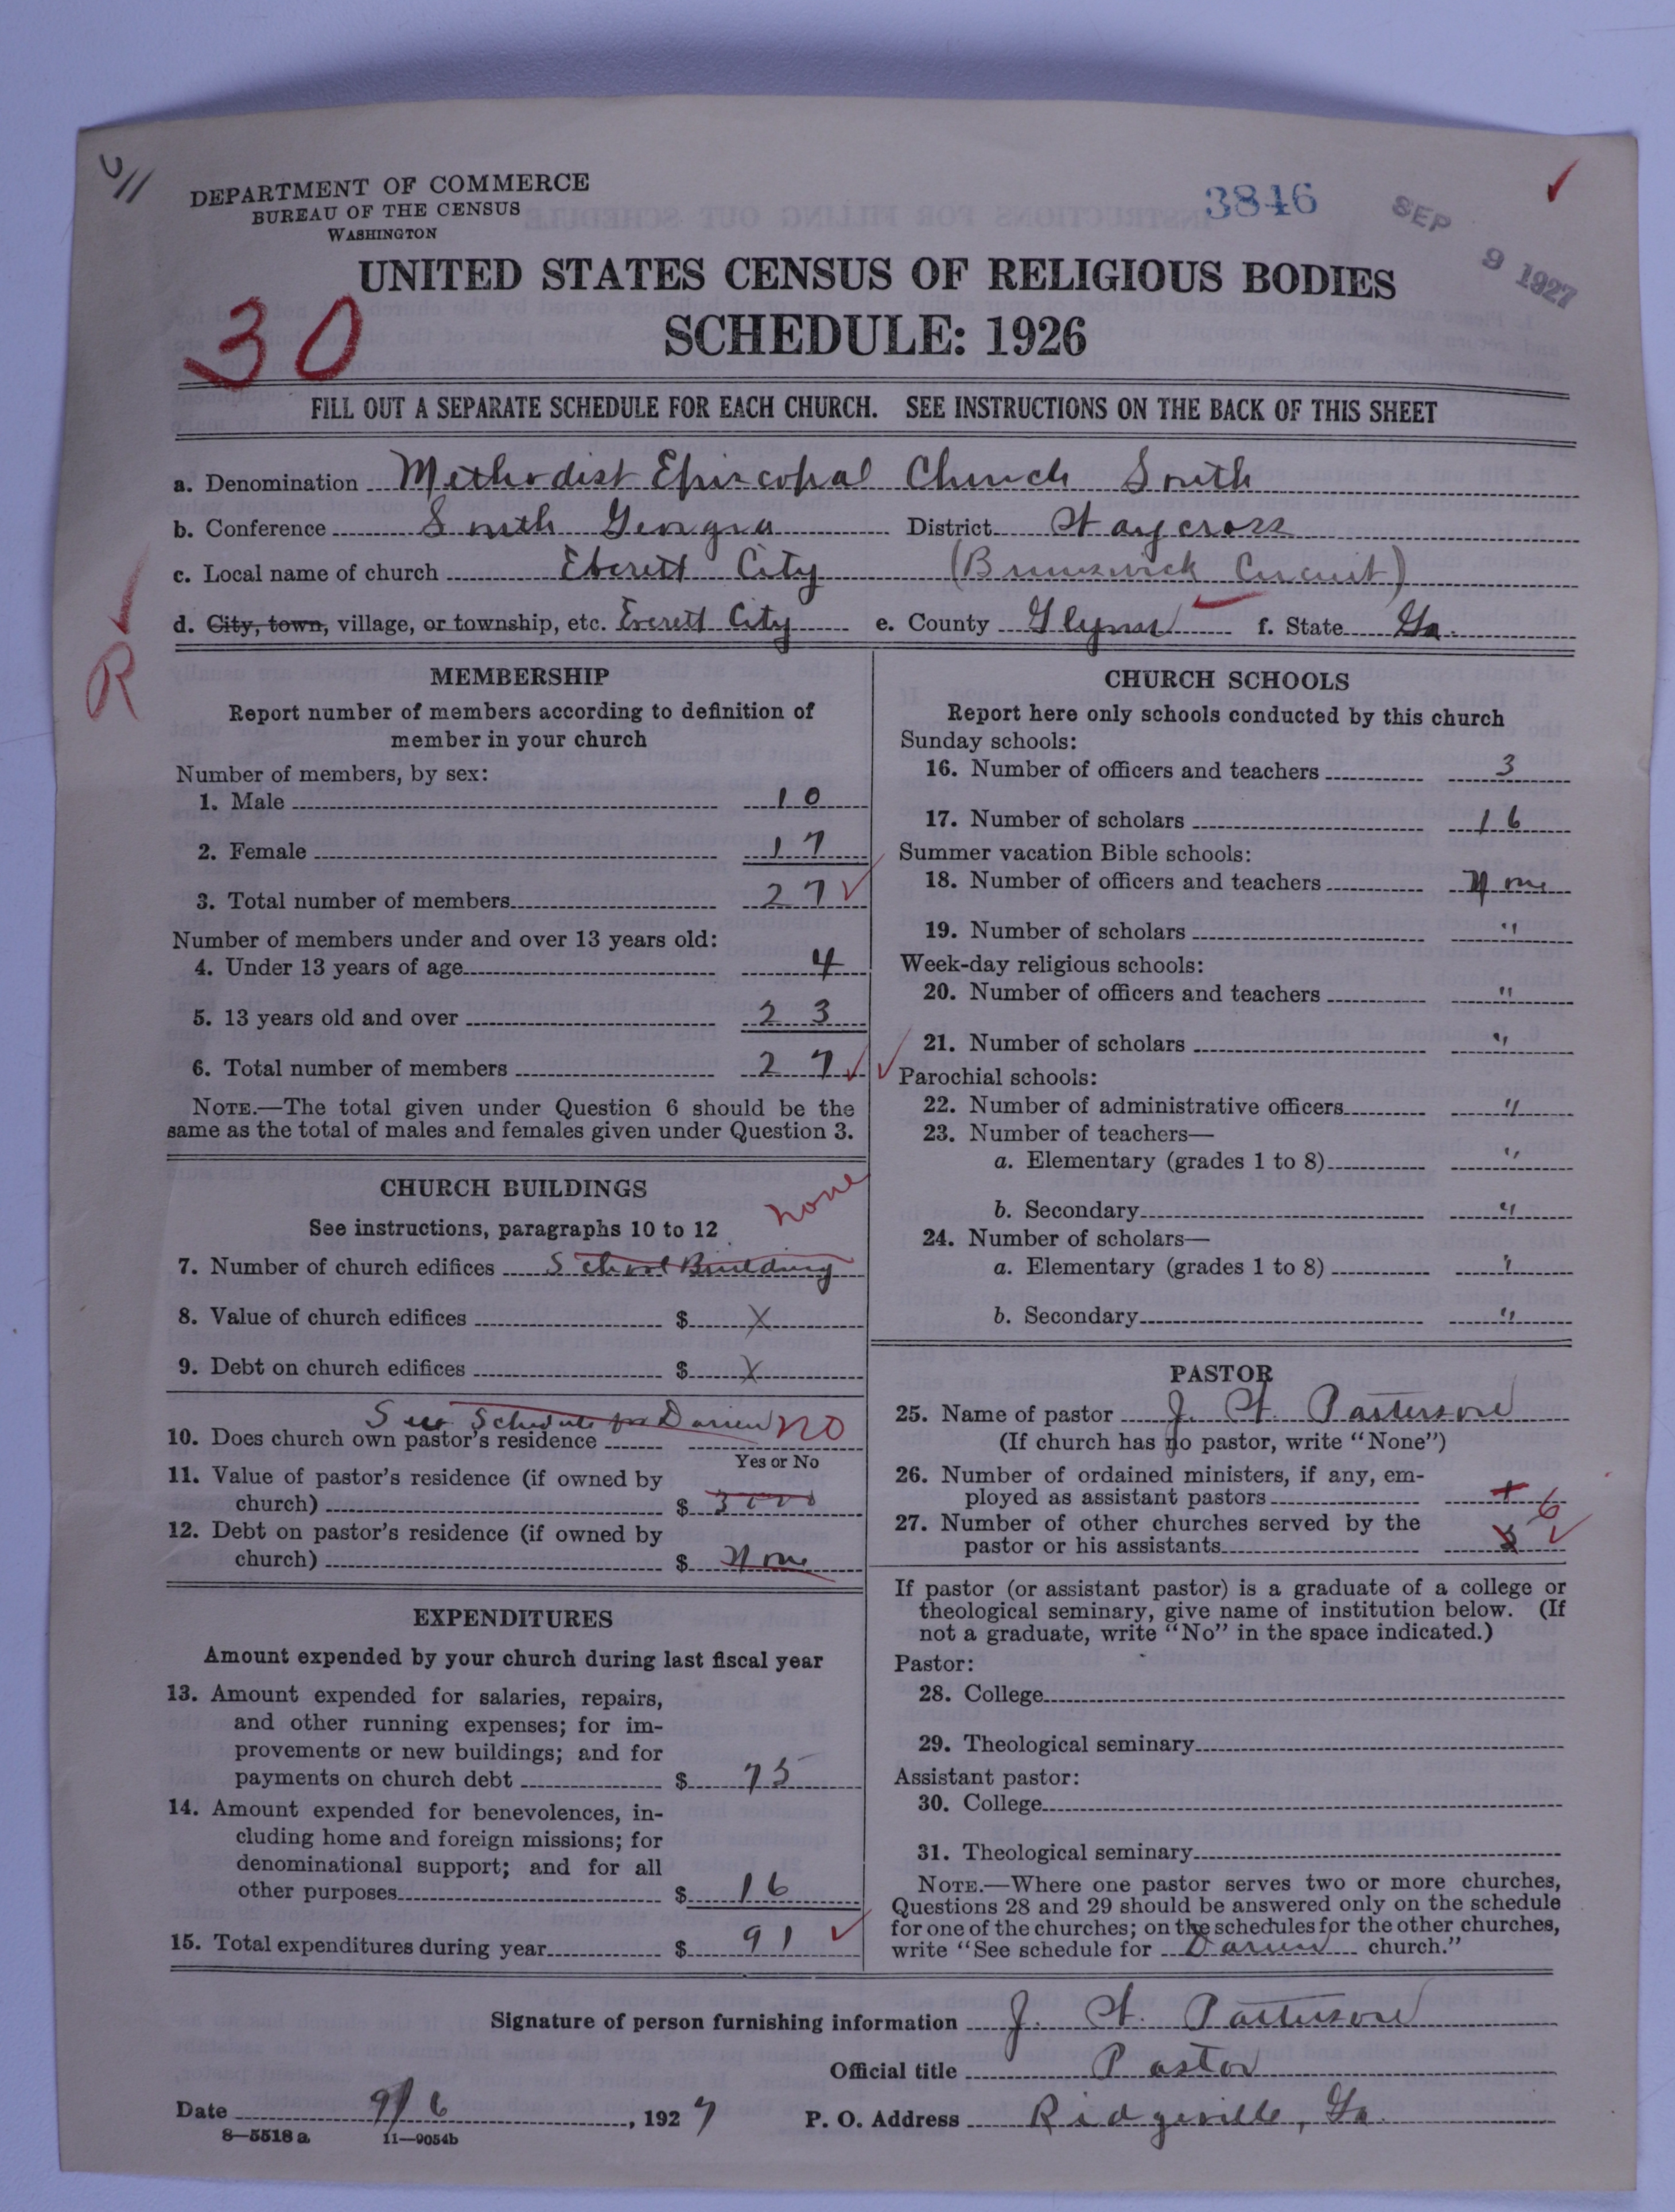 DEPARTMENT OF COMMERCE
BUREAU OF THE CENSUS
WASHINGTON
3846
SEP 9 1927
UNITED STATES CENSUS OF RELIGIOUS BODIES
SCHEDULE: 1926
30
FILL OUT A SEPARATE SCHEDULE FOR EACH CHURCH. SEE INSTRUCTIONS ON THE BACK OF THIS SHEET
a. Denomination Methodist Episcopal Church South
b. Conference South Georgia District Waycross
c. Local name of church Everett City (Brunswick Circuit)
d. City, town, village, or township, etc. Everett City e. County Glynn f. State Ga.
R
MEMBERSHIP
Report number of members according to definition of
member in your church
Number of members, by sex:
1. Male 10
2. Female 17
3. Total number of members 27
Number of members under and over 13 years old:
4. Under 13 years of age 4
5. 13 years old and over 23
6. Total number of members 27
NOTE.—The total given under Question 6 should be the
same as the total of males and females given under Question 3.
CHURCH BUILDINGS
See instructions, paragraphs 10 to 12
none
7. Number of church edifices School Building
8. Value of church edifices $ X
9. Debt on church edifices $ X
See Schedule for Darien NO
10. Does church own pastor's residence
Yes or No
11. Value of pastor's residence (if owned by
church) $ 3000
12. Debt on pastor's residence (if owned by
church) $ None
EXPENDITURES
Amount expended by your church during last fiscal year
13. Amount expended for salaries, repairs,
and other running expenses; for im-
provements or new buildings; and for
payments on church debt $ 75
14. Amount expended for benevolences, in-
cluding home and foreign missions; for
denominational support; and for all
other purposes $ 16
15. Total expenditures during year $ 91
CHURCH SCHOOLS
Report here only schools conducted by this church
Sunday schools:
16. Number of officers and teachers 3
17. Number of scholars 16
Summer vacation Bible schools:
18. Number of officers and teachers None
19. Number of scholars "
Week-day religious schools:
20. Number of officers and teachers "
21. Number of scholars "
Parochial schools:
22. Number of administrative officers "
23. Number of teachers—
a. Elementary (grades 1 to 8) "
b. Secondary "
24. Number of scholars—
a. Elementary (grades 1 to 8) "
b. Secondary "
PASTOR
25. Name of pastor J. W. Patterson
(If church has no pastor, write "None")
26. Number of ordained ministers, if any, em-
ployed as assistant pastors
6
27. Number of other churches served by the
pastor or his assistants
If pastor (or assistant pastor) is a graduate of a college or
theological seminary, give name of institution below. (If
not a graduate, write "No" in the space indicated.)
Pastor:
28. College
29. Theological seminary
Assistant pastor:
30. College
31. Theological seminary
NOTE.—Where one pastor serves two or more churches,
Questions 28 and 29 should be answered only on the schedule
for one of the churches; on the schedules for the other churches,
write "See schedule for Darien church."
Signature of person furnishing information J. W. Patterson
Official title Pastor
Date 9/6, 1927 P. O. Address Ridgeville, Ga.
8—5518 a 11—9054b